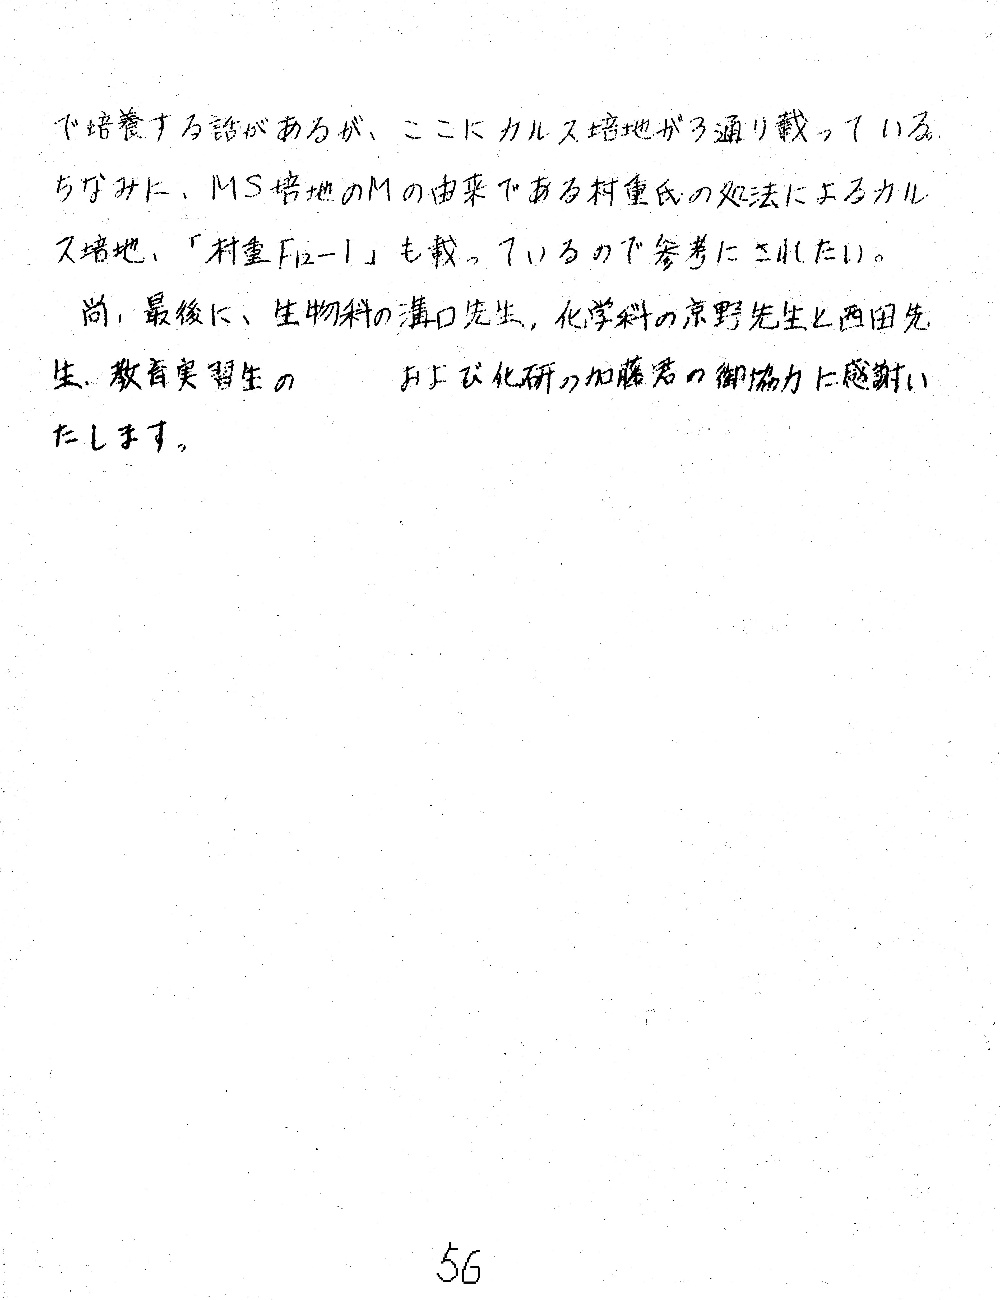 で培養する話があるが、ここにカルス培地が3通り載っている。
ちなみに、MS培地のMの由来である村重氏の処法によるカル
ス培地、「村重F12-1」も載っているので参考にされたい。
尚、最後に、生物科の溝口先生、化学科の京野先生と西田先
生、教育実習生の　　　および化研の加藤君の御協力に感謝い
たします。
56